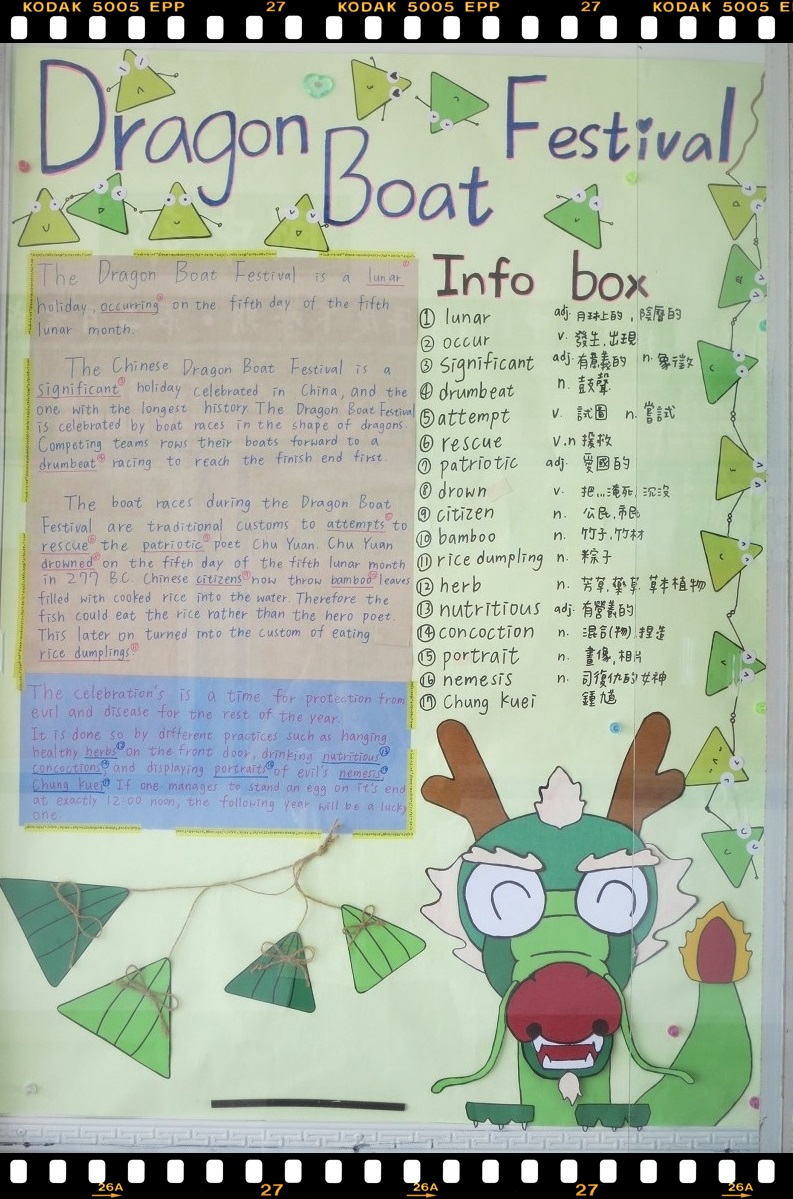 KODAK 5005 EPP 27 KODAK 5005 EPP 27 KODAK 5005 E
Dragon Boat Festival
The Dragon Boat Festival is a lunar①
holiday, occurring② on the fifth day of the fifth
lunar month.
The Chinese Dragon Boat Festival is a
significant③ holiday celebrated in China, and the
one with the longest history. The Dragon Boat Festival
is celebrated by boat races in the shape of dragons.
Competing teams rows their boats forward to a
drumbeat④ racing to reach the finish end first.
The boat races during the Dragon Boat
Festival are traditional customs to attempts⑤ to
rescue⑥ the patriotic⑦ poet Chu Yuan. Chu Yuan
drowned⑧ on the fifth day of the fifth lunar month
in 277 B.C. Chinese citizens⑨ now throw bamboo⑩ leaves
filled with cooked rice into the water. Therefore the
fish could eat the rice rather than the hero poet.
This later on turned into the custom of eating
rice dumplings⑪
The celebration's is a time for protection from
evil and disease for the rest of the year.
It is done so by different practices such as hanging
healthy herbs⑫ on the front door, drinking nutritious⑬
concoctions⑭, and displaying portraits⑮ of evil's nemesis⑯
Chung Kuei⑰ If one manages to stand an egg on it's end
at exactly 12:00 noon, the following year will be a lucky
one.
Info box
① lunar adj. 月球上的, 陰曆的
② occur v. 發生, 出現
③ significant adj. 有意義的 n. 象徵
④ drumbeat n. 鼓聲
⑤ attempt v. 試圖 n. 嘗試
⑥ rescue v.n 援救
⑦ patriotic adj. 愛國的
⑧ drown v. 把...淹死, 沉沒
⑨ citizen n. 公民, 市民
⑩ bamboo n. 竹子, 竹材
⑪ rice dumpling n. 粽子
⑫ herb n. 芳草, 藥草, 草本植物
⑬ nutritious adj. 有營養的
⑭ concoction n. 混合(物), 捏造
⑮ portrait n. 畫像, 相片
⑯ nemesis n. 司復仇的女神
⑰ Chung Kuei 鍾馗
26A 27 26A 27 26A